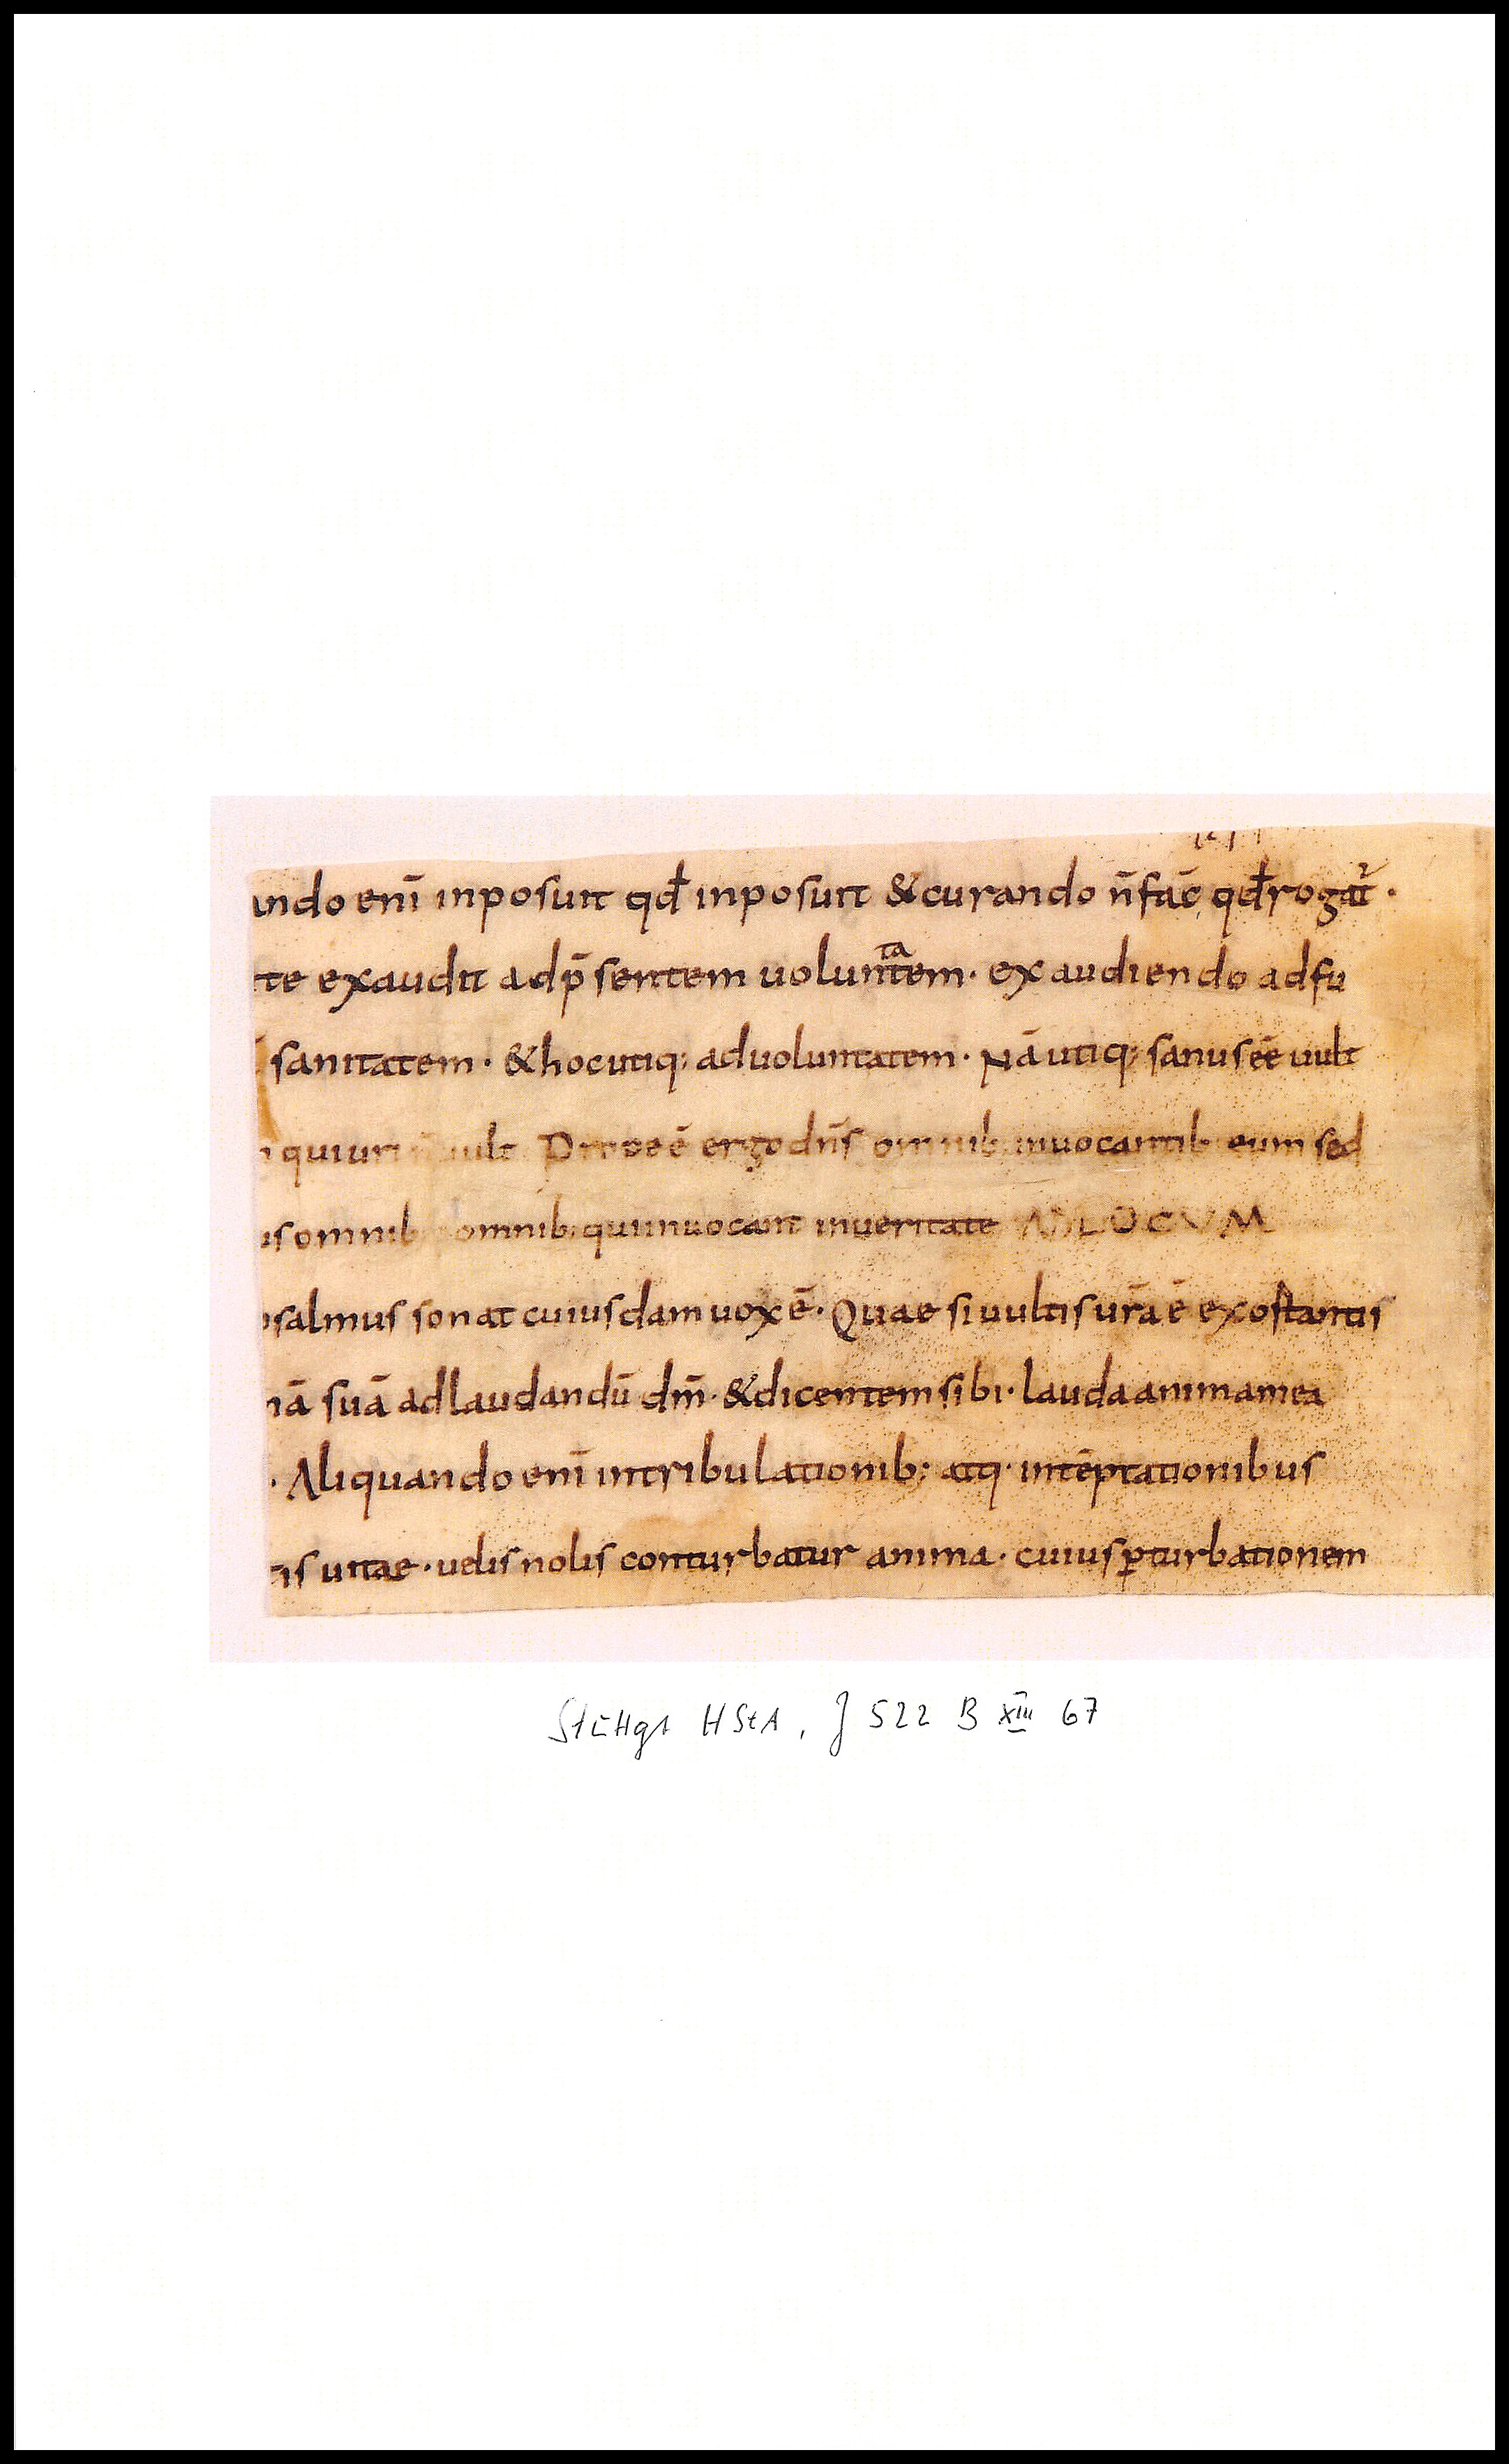 ando enī inposuit qđ inposuit & curando n̄ fac̄ qđ rogat̄ ·
te exaudit ad p̄sentem uoluntatem · exaudiendo ad fu
sanitatem · & hoc utiq; ad uoluntatem · Nā utiq; sanus eē uult
qui uult Prope ē ergo dn̄s omnib; inuocantib; eum sed
is omnib; omnib; qui inuocant in ueritate AD LOCUM
psalmus sonat cuiusdam uox ē · Quae si uultis ur̄a ē exostantis
mā suā ad laudandū dm̄ · & dicentem sibi · lauda anima mea
· Aliquando enī in tribulationib; atq · in tēptationibus
tis uitae · uelis nolis conturbatur anima · cuius p̱turbationem
Stuttgt HStA, J 522 B XIII 67